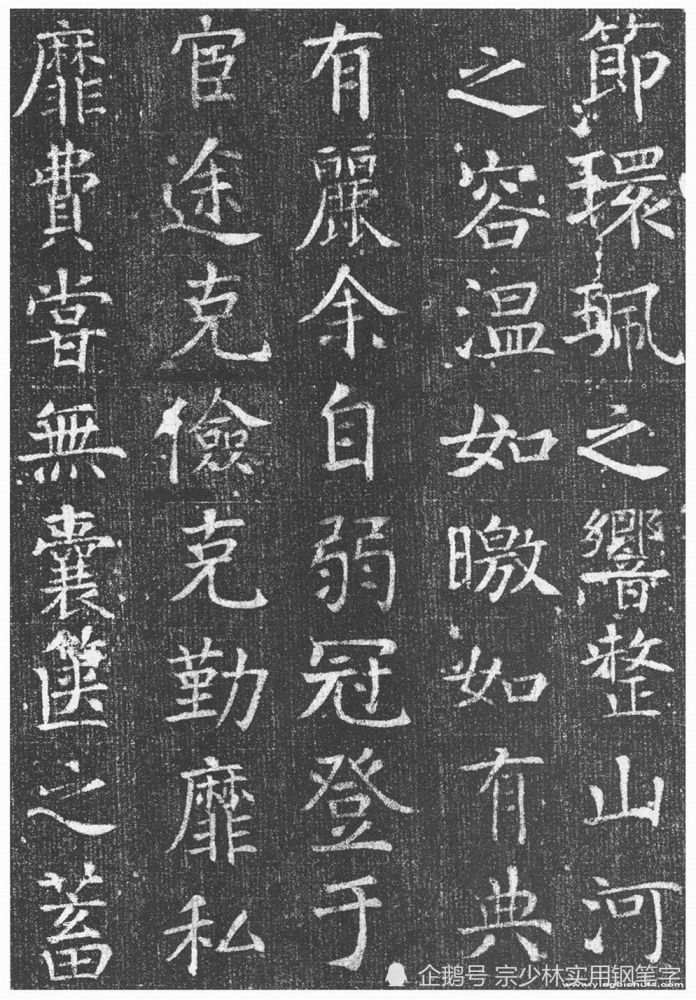 節環珮之響整山河
之容温如曒如有典
有麗余自弱冠登于
宦途克儉克勤靡私
靡費嘗無囊篋之蓄
企鹅号 宗少林实用钢笔字
www.yingbishufa.com